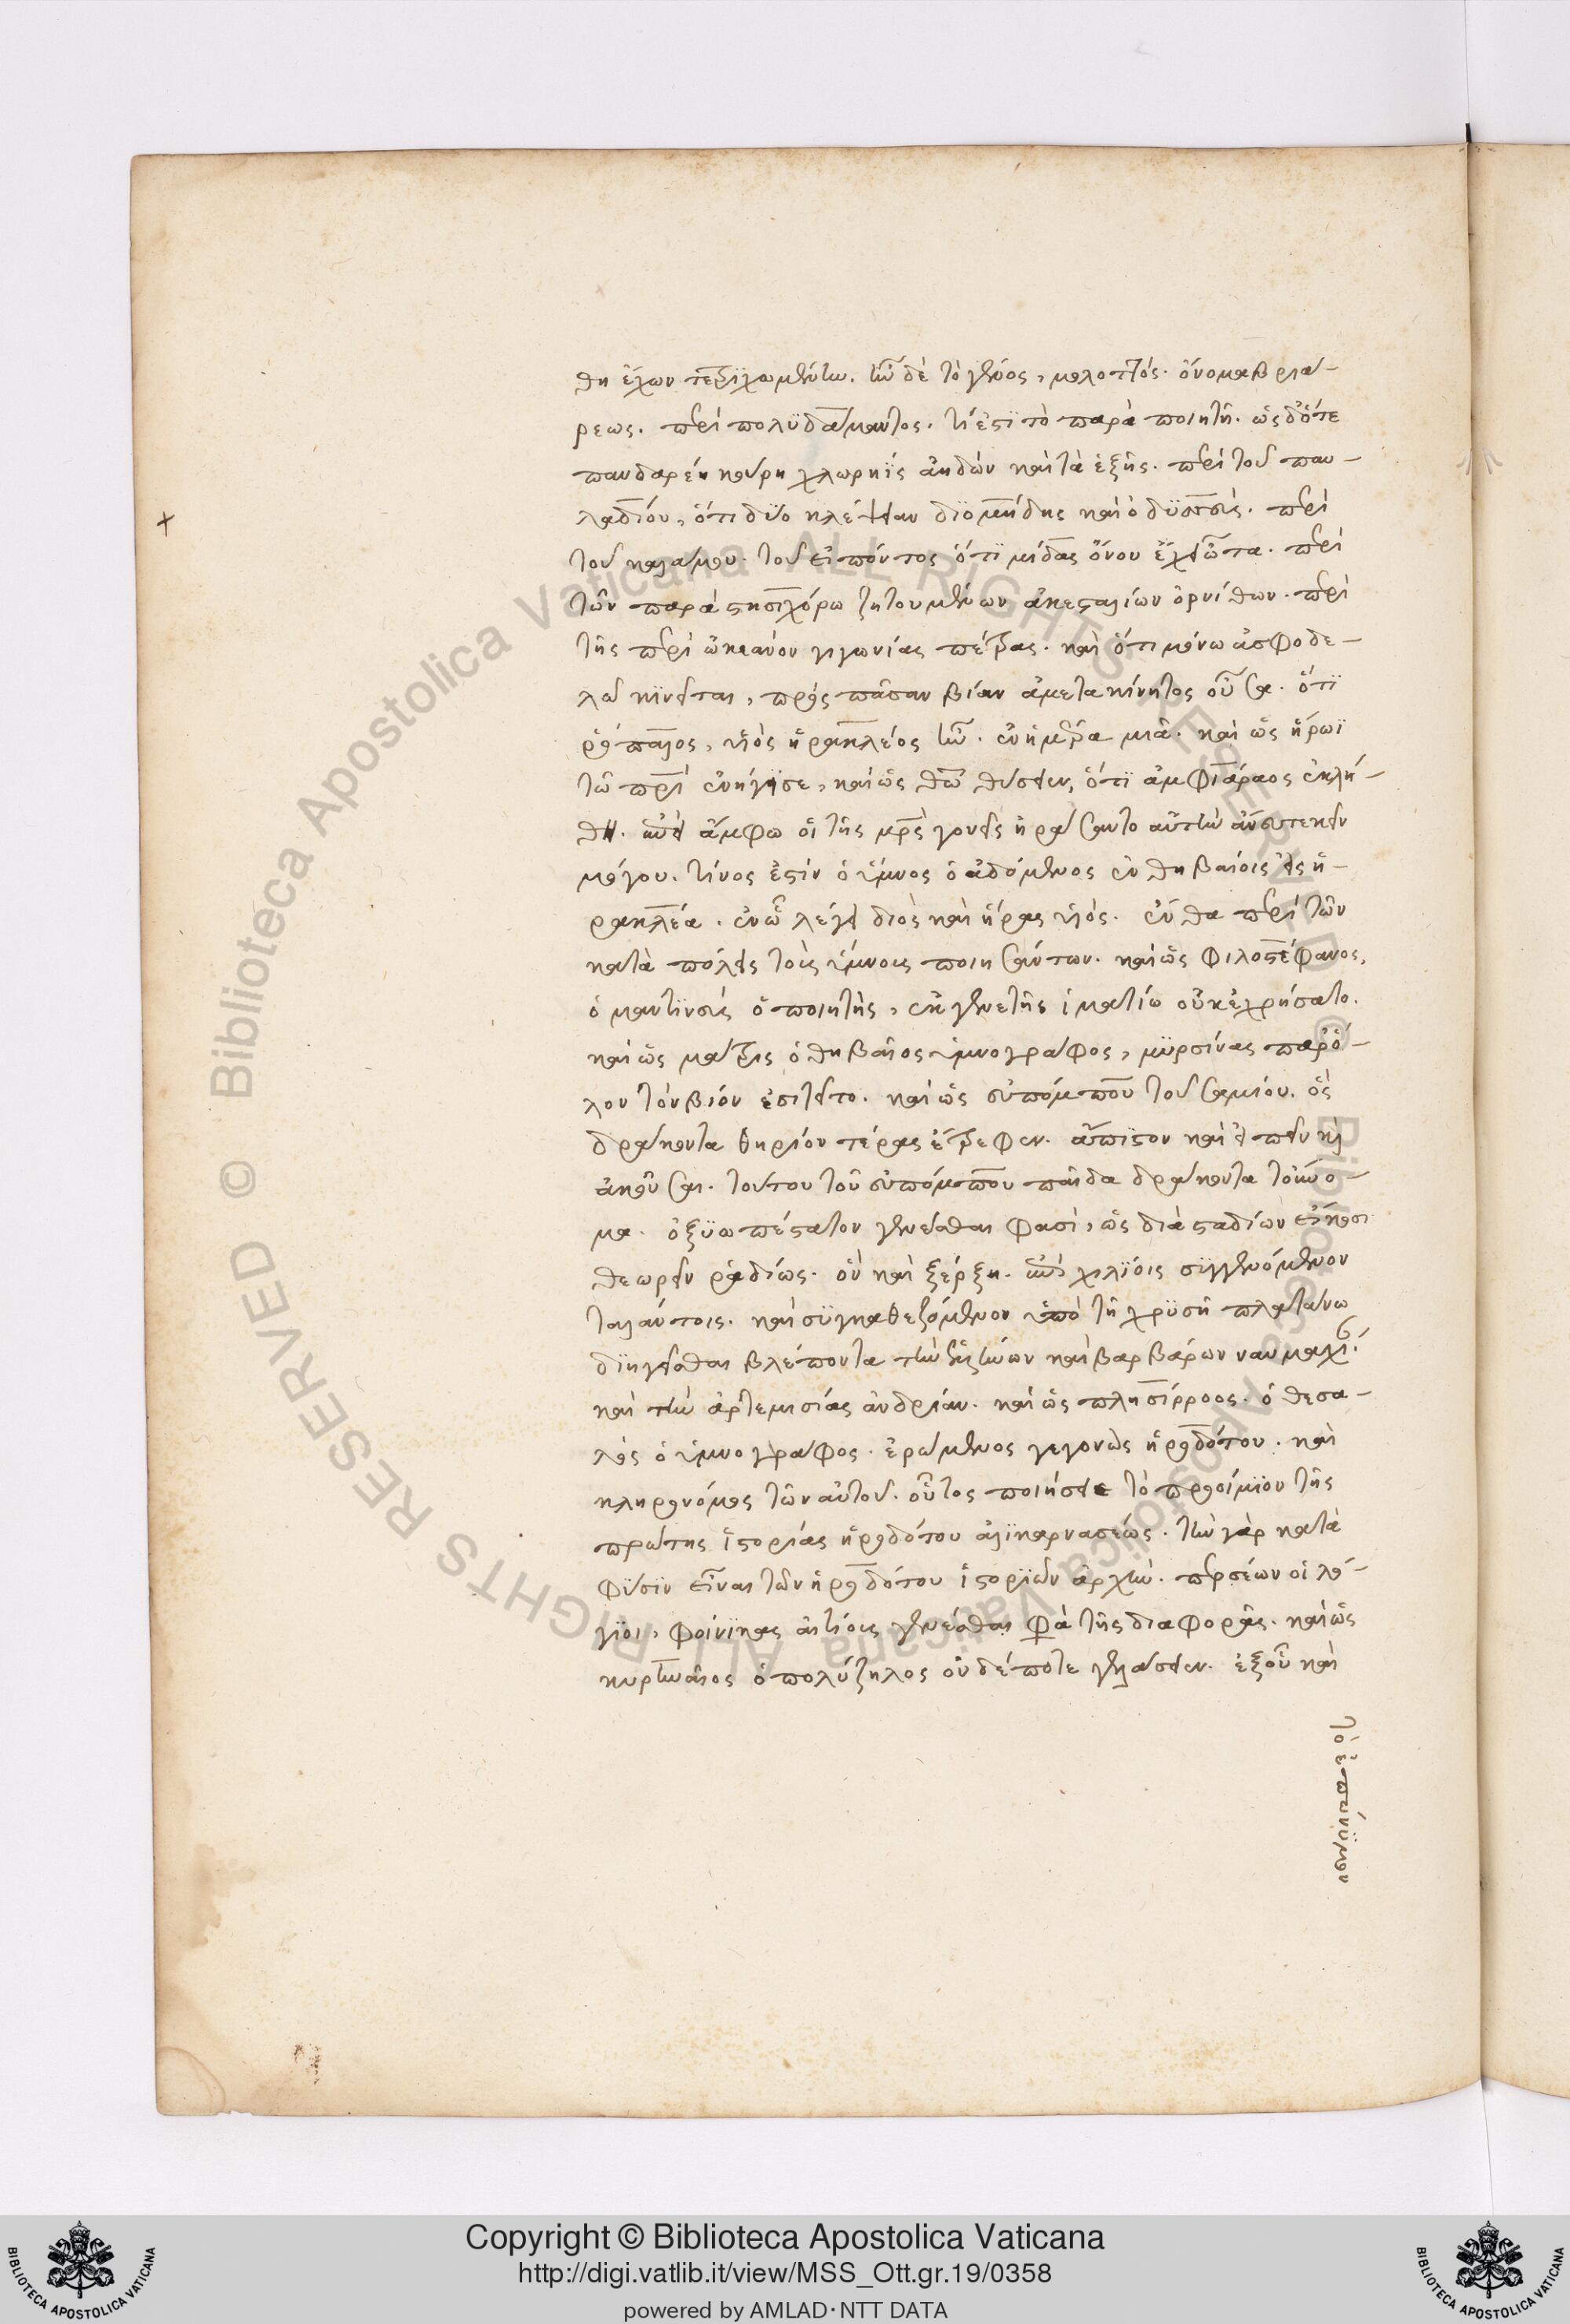 θη ἔχων τετριχωμένην. ἦν δὲ τὸ γένος, μολοττός. ὄνομα βριά-
ρεως. περὶ πολϋδάμαντος. τί ἐστϊ τὸ παρὰ ποιητῆ. ὡς δ' ὅτε
πανδαρέη κούρη χλωρηῒς ἀηδών καὶ τὰ ἑξῆς. περὶ τοῦ παν-
λαδίου, ὅτι δύο κλέψαν διομήδης καὶ ὀδϋσσεύς. περὶ
τοῦ καλάμου τοῦ εἰπόντος ὅτϊ μίδας ὄνου ἔχει ὦτα. περὶ
τῶν παρὰ στησιχόρω ζητουμένων ἀκεσταλίων ὀρνίθων. περὶ
τῆς περὶ ὠκεανὸν γιγωνίας πέτρας. καὶ ὅτι μόνω ἀσφοδε-
λῶ κινεῖται, πρὸς πᾶσαν βίαν ἀμετακίνητος οὖσα. ὅτϊ
ῥόπαλος, υἱὸς ἡρακλέος ἦν. ἐν ἡμέρα μιᾶ. καὶ ὡς ἥρωϊ
τῶ πατρὶ ἐνήγισε, καὶ ὡς θεῶ θύσειεν, ὅτϊ ἀμφιάραος ἐκλή-
θη. ἐπεὶ ἄμφω οἱ τῆς μητρὸς γονεῖς ἠράσαντο αὐτὴν ἀνευτεκεῖν
μόγου. τίνος ἐστὶν ὁ ὕμνος ὁ ἀδόμενος ἐν θηβαίοις εἰς ἡ-
ρακλέα. ἐν ὧ λέγει διὸς καὶ ἥρας υἱός. ἔνθα περὶ τῶν
κατὰ πόλεις τοὺς ὕμνους ποιησάντων. καὶ ὡς φιλοστέφανος,
ὁ μαντινεὺς ὁ ποιητὴς, ἐκ γενετῆς ἱματίω οὐκ ἐχρήσατο.
καὶ ὡς μάτρις ὁ θηβαῖος ὑμνογράφος, μϋρσίνας παρ' ὅ-
λον τὸν βίον ἐσιτεῖτο. καὶ ὡς εὐπόμπου τοῦ σαμίου. ὃς
δράκοντα θηρίον τέρας ἔτρεφεν. ἄπϊστον καὶ εἰπεῖν καὶ
ἀκοῦσαι. τούτου τοῦ εὐπόμπου παῖδα δράκοντα τοὔνο-
μα. ὀξϋωπέστατον γενέσθαι φασὶ, ὡς διὰ σταδίων εἴκοσι
θεωρεῖν ῥαδίως. ὃν καὶ ξέρξη. ἐπὶ χιλϊοις σϋγγενόμενον
ταλάντοις. καὶ σϋγκαθεζόμενον ὑπὸ τῆ χρϋσῆ πλατάνω
διηγεῖσθαι βλέποντα τὴν ἑλλήνων καὶ βαρβάρων ναυμαχί.
καὶ τὴν ἀρτεμισίας ἀνδρίαν. καὶ ὡς πλησίρροος. ὁ θεσα-
λὸς ὁ ὑμνογράφος. ἐρώμενος γεγονὼς ἡροδότου. καὶ
κληρονόμος τῶν αὐτοῦ. οὗτος ποιήσειε τὸ προοίμϊον τῆς
πρώτης ἱστορίας ἡροδότου ἁλϊκαρνασέως. τὴν γὰρ κατὰ
φύσϊν εἶναι τῶν ἡροδότου ἱστορϊῶν ἀρχὴν. περσέων οἱ λό-
γϊοι, φοίνϊκας αἰτίους γενέσθαι φασὶ τῆς διαφορᾶς. καὶ ὡς
κυρηναῖος ὁ πολύζηλος οὐδέποτε γελάσειεν. ἐξ οὗ καὶ
τὸ ἐπώνϋμον